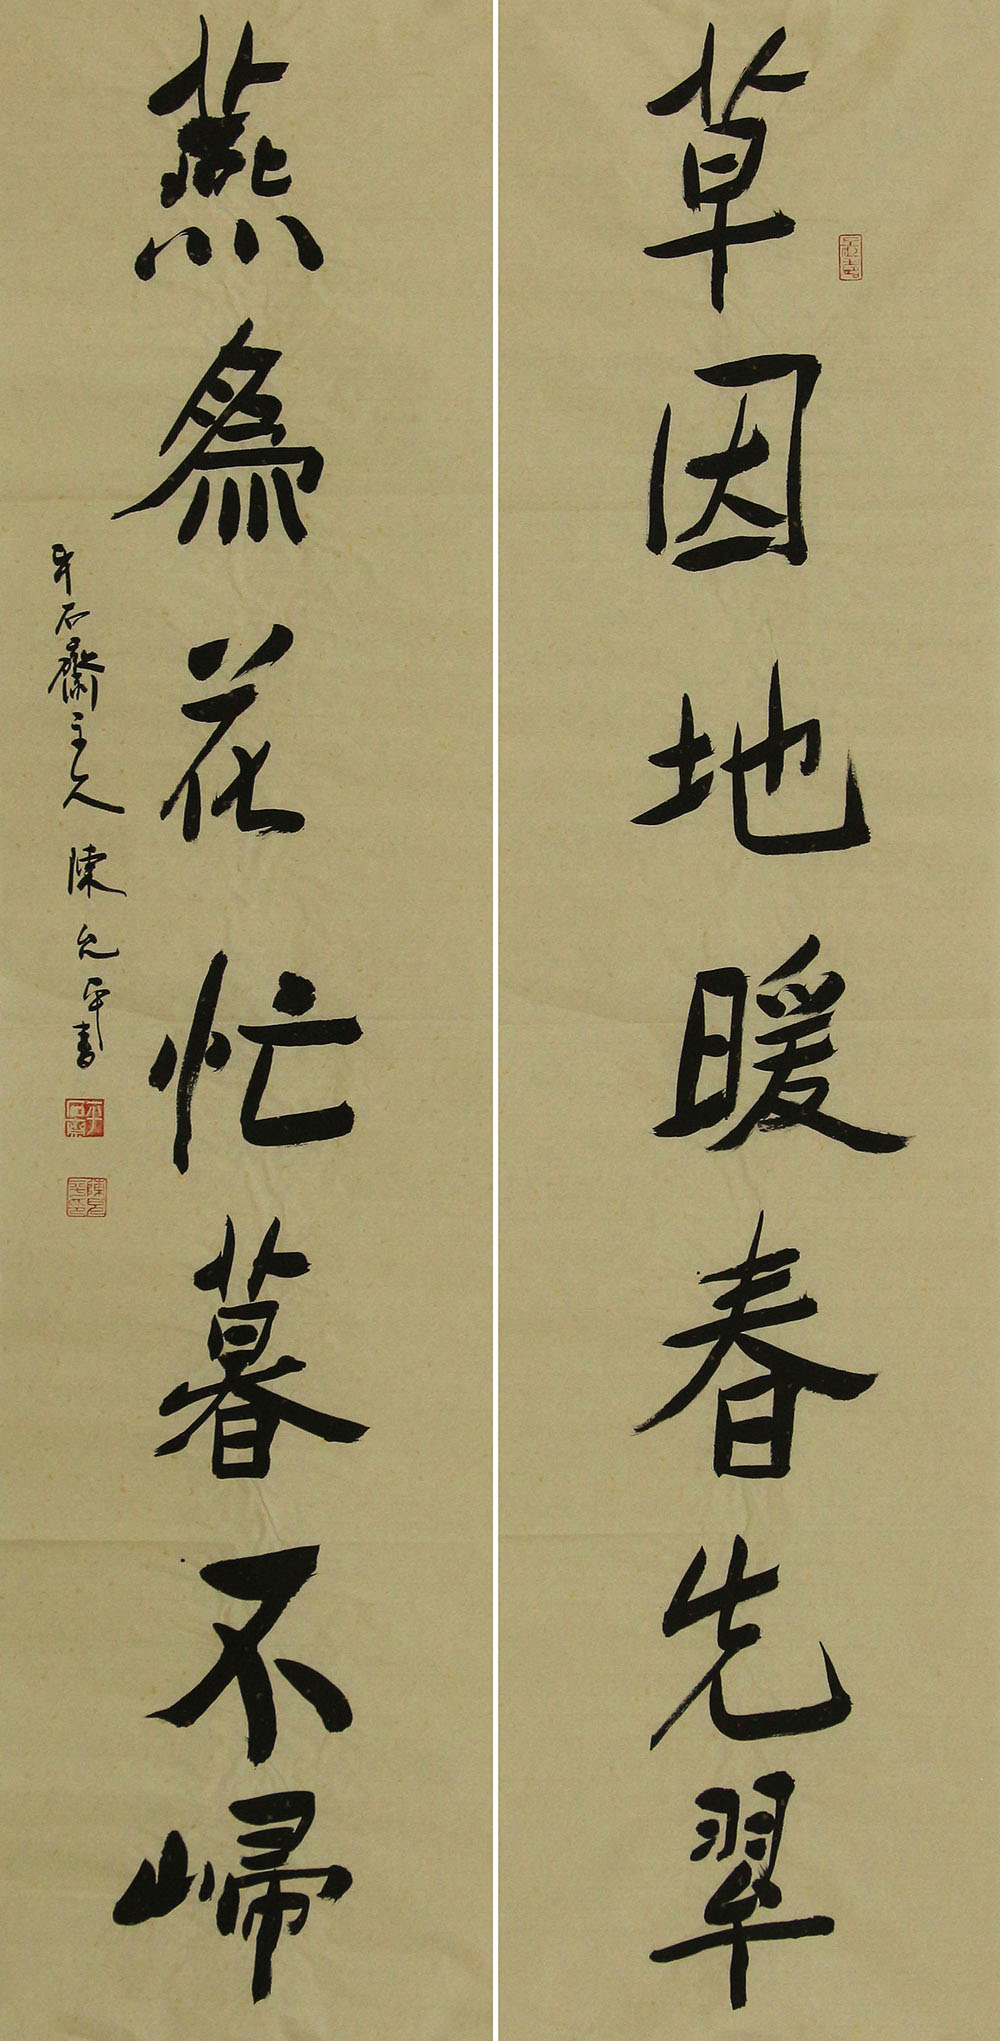 草因地暖春先翠
燕為花忙暮不歸
石齋主人陳允平書